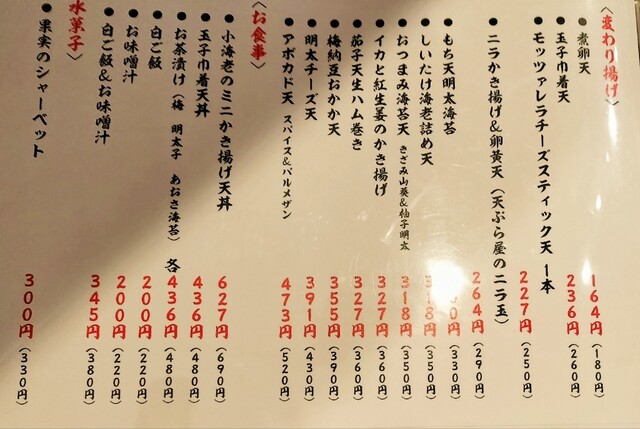 〈変わり揚げ〉
● 煮卵天 164円（180円）
● 玉子巾着天 236円（260円）
● モッツァレラチーズスティック天 1本 227円（250円）
● ニラかき揚げ＆卵黄天（天ぷら屋のニラ玉） 264円（290円）
● もち天明太海苔 （330円）
● しいたけ海老詰め天 318円（350円）
● おつまみ海苔天 きざみ山葵＆柚子明太 318円（350円）
● イカと紅生姜のかき揚げ 327円（360円）
● 茄子天生ハム巻き 327円（360円）
● 梅納豆おかか天 355円（390円）
● 明太チーズ天 391円（430円）
● アボカド天 スパイス＆パルメザン 473円（520円）
〈お食事〉
● 小海老のミニかき揚げ天丼 627円（690円）
● 玉子巾着天丼 436円（480円）
● お茶漬け（梅 明太子 あおさ海苔）各 436円（480円）
● 白ご飯 200円（220円）
● お味噌汁 200円（220円）
● 白ご飯＆お味噌汁 345円（380円）
水菓子〉
● 果実のシャーベット 300円（330円）